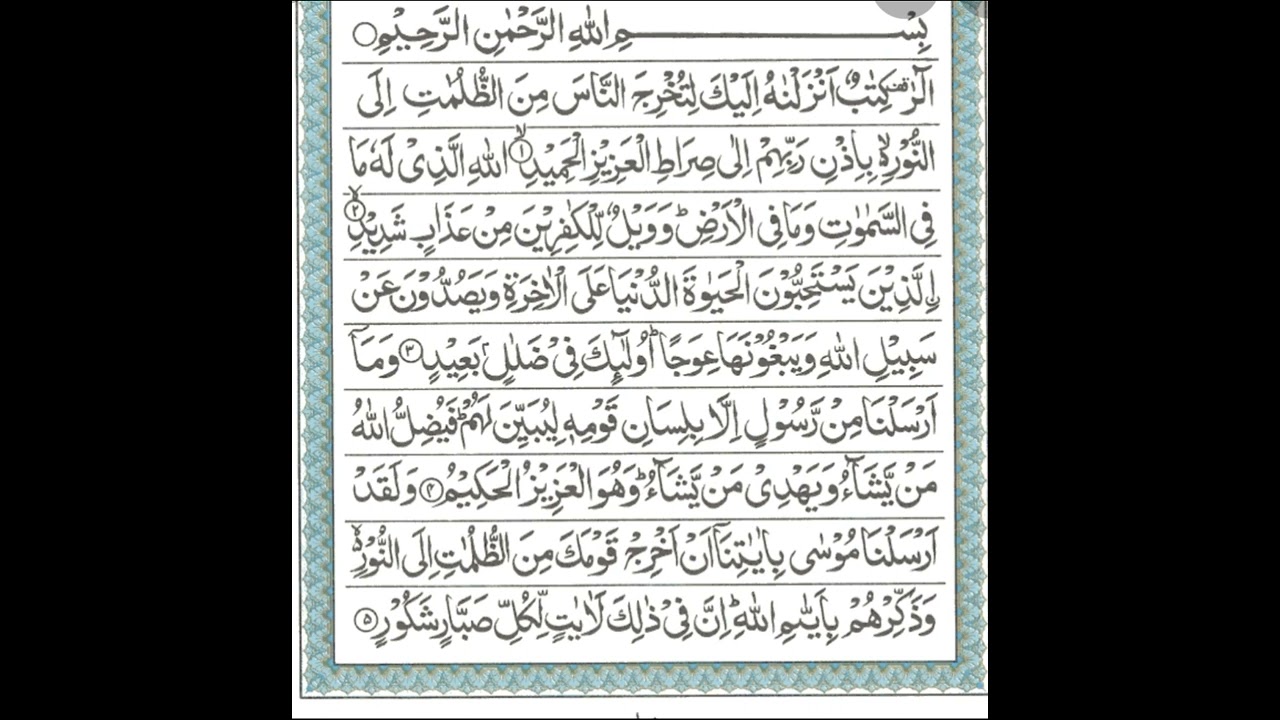 بِسْمِ اللهِ الرَّحْمٰنِ الرَّحِيْمِ ○
الٓرٰ ۟ كِتٰبٌ اَنْزَلْنٰهُ اِلَيْكَ لِتُخْرِجَ النَّاسَ مِنَ الظُّلُمٰتِ اِلَى
النُّوْرِ ۬ۙ بِاِذْنِ رَبِّهِمْ اِلٰى صِرَاطِ الْعَزِيْزِ الْحَمِيْدِ ۙ﴿۱﴾ اللهِ الَّذِىْ لَهٗ مَا
فِى السَّمٰوٰتِ وَمَا فِى الْاَرْضِ ؕ وَوَيْلٌ لِّلْكٰفِرِيْنَ مِنْ عَذَابٍ شَدِيْدِ ۙ﴿۲﴾
اِ۟لَّذِيْنَ يَسْتَحِبُّوْنَ الْحَيٰوةَ الدُّنْيَا عَلَى الْاٰخِرَةِ وَيَصُدُّوْنَ عَنْ
سَبِيْلِ اللهِ وَيَبْغُوْنَهَا عِوَجًا ؕ اُولٰٓئِكَ فِىْ ضَلٰلٍۢ بَعِيْدٍ ﴿۳﴾ وَمَاۤ
اَرْسَلْنَا مِنْ رَّسُوْلٍ اِلَّا بِلِسَانِ قَوْمِهٖ لِيُبَيِّنَ لَهُمْ ؕ فَيُضِلُّ اللهُ
مَنْ يَّشَآءُ وَيَهْدِىْ مَنْ يَّشَآءُ ؕ وَهُوَ الْعَزِيْزُ الْحَكِيْمُ ﴿۴﴾ وَلَقَدْ
اَرْسَلْنَا مُوْسٰى بِاٰيٰتِنَاۤ اَنْ اَخْرِجْ قَوْمَكَ مِنَ الظُّلُمٰتِ اِلَى النُّوْرِ ۬ۙ
وَذَكِّرْهُمْ بِاَيّٰىمِ اللهِ ؕ اِنَّ فِىْ ذٰلِكَ لَاٰيٰتٍ لِّكُلِّ صَبَّارٍ شَكُوْرٍ ﴿۵﴾